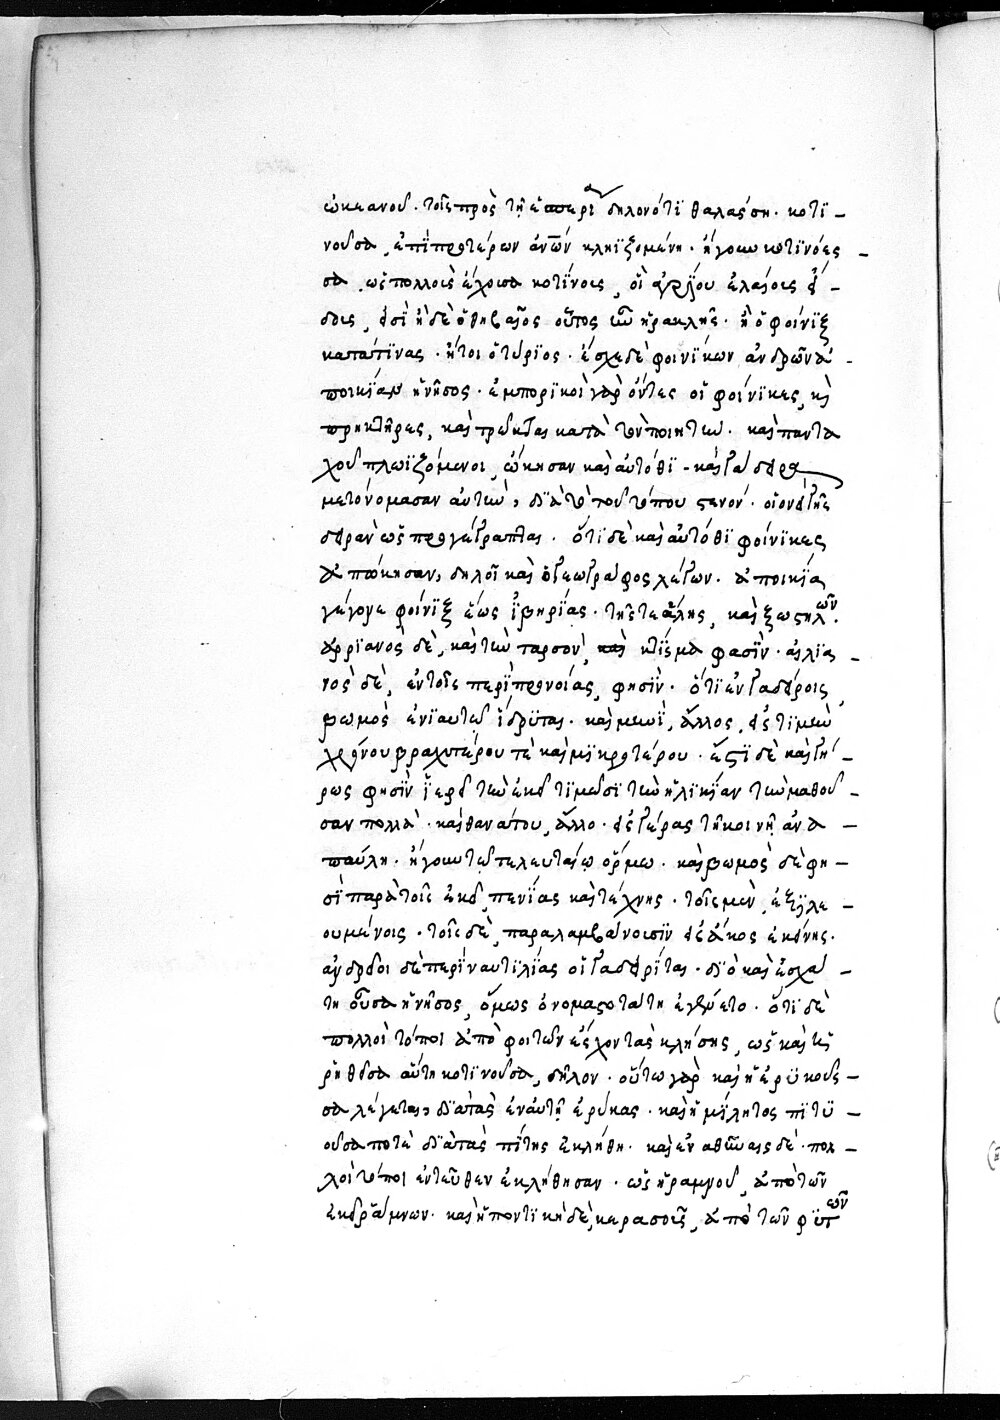 ὠκεανοῦ· τοῖς πρὸς τῇ ἑσπερίᾳ δηλονότι θαλάσσῃ. κοτι-
νοῦσα, ἐπὶ προτέρων ἀνῶν κληϊζομένη· ἤγουν κοτινόες
σα, ὡς πολλοὺς ἔχουσα κοτίνους, οἳ ἀγρίου ἐλαίου εἰ-
σιν, εἰσὶ ἡ δὲ ὁ θηβαῖος οὗτος ἦν ἡρακλῆς· ἢ ὁ φοίνιξ
κατὰ τινας· ἤτοι ὁ τύριος· ἔσχε δὲ φοινίκων ἀνδρῶν ἀ-
ποικίαν ἡ νῆσος· ἐμπορικοὶ γὰρ ὄντες οἱ φοίνικες, καὶ
πρηκτῆρες, καὶ τρῶκται κατὰ τὸν ποιητὴν· καὶ παντα
χοῦ πλωϊζόμενοι, ᾤκησαν καὶ αὐτόθι - καὶ γάδειρα
μετονόμασαν αὐτὴν, διὰ τὸ τοῦ τόπου στενόν· οἱονεὶ γῆς
δειρὰν ὡς προγέγραπται· ὅτι δὲ καὶ αὐτόθι φοίνικες
ἀπῴκησαν, δηλοῖ καὶ ὁ γεωγράφος λέγων· ἀποικία
γέγονε φοίνιξ ἕως ἰβηρίας· τῆς τε ἄλλης, καὶ ἔξω στηλῶν·
ἀρριανὸς δὲ, καὶ τὴν ταρσὸν, κτίσμα φασὶν· αἰλια-
νὸς δὲ, ἐν τοῖς περὶ προνοίας, φησὶν· ὅτι ἐν γαδείροις
βωμὸς ἐνιαυτῷ ἵδρυται· καὶ μηνὶ, ἄλλος, εἰς τιμὴν
χρόνου βραχυτέρου τὲ καὶ μικροτέρου· ἔστι δὲ καὶ γή-
ρως φησὶν ἱερὸν τῶν ἐκεῖ τιμῶσι τὴν ἡλικίαν τὴν μαθοῦ-
σαν πολλὰ· καὶ θανάτου, ἄλλο· εἰς γέρας τῇ κοινῇ ἀνα-
παύλῃ· ἤγουν τῷ τελευταίῳ ὅρμῳ· καὶ βωμὸς δὲ φη-
σὶ παρὰ τοῖς ἐκεῖ, πενίας καὶ τέχνης· τοῖς μὲν, ἐξιλε-
ουμένοις· τοῖς δὲ, παραλαμβάνουσιν εἰς ἄκος ἐκείνης.
ἀνδρεῖοι δὲ περὶ ναυτιλίας οἱ γαδειρῖται· διὸ καὶ ἐσχά-
τη οὖσα ἡ νῆσος, ὅμως ὀνομαστοτάτη ἐγένετο· ὅτι δὲ
πολλοὶ τόποι ἀπὸ φυτῶν ἔχοντας κλήσης, ὡς καὶ ἡ
ῥηθεῖσα αὕτη κοτινοῦσα, δῆλον· οὕτω γὰρ καὶ ἡ ἐρικοῦσ-
σα λέγεται, διὰ τὰς ἐν αὐτῇ ἐρύκας· καὶ ἡ μίλητος πιτυ-
οῦσα ποτὲ διὰ τὰς πίτης ἐκλήθη· καὶ ἐν ἀθήναις δὲ πολ-
λοὶ τόποι ἐντεῦθεν ἐκλήθησαν· ὡς ἡ ῥαμνοῦ, ἀπὸ τῶν
ἐκεῖ ῥάμνων· καὶ ἡ ποντικὴ δὲ, κερασοῦς, ἀπὸ τῶν φυτῶν